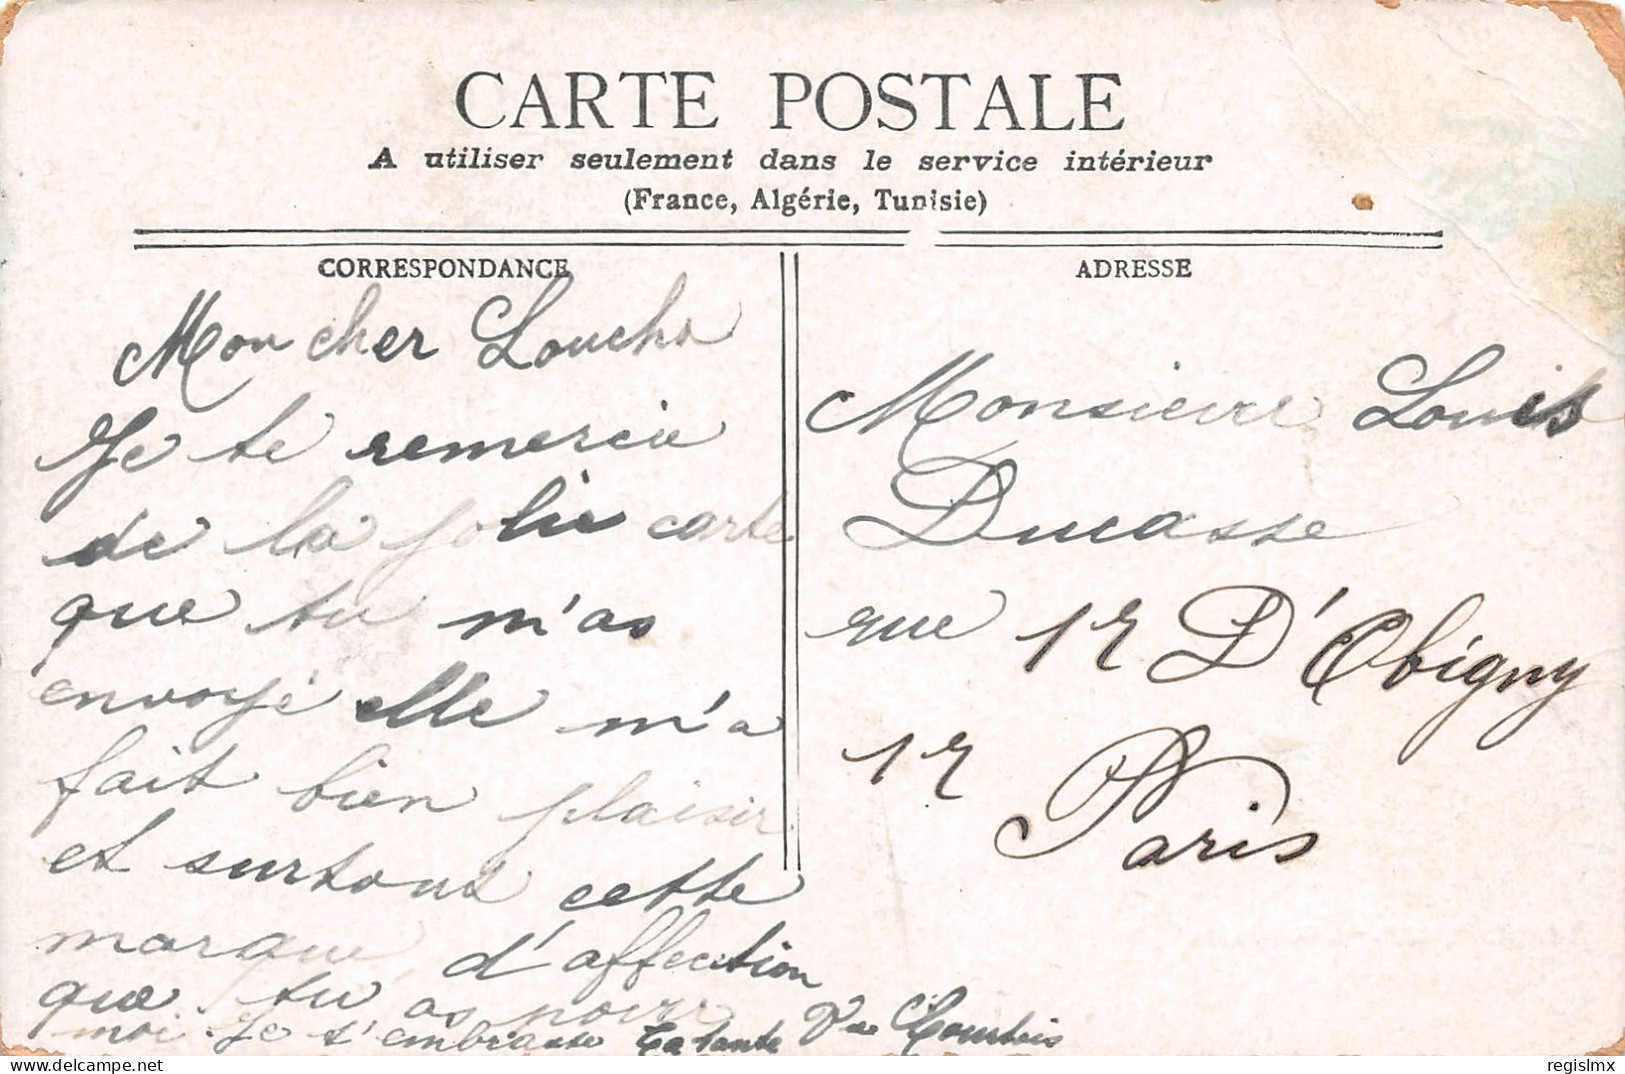 CARTE POSTALE
A utiliser seulement dans le service intérieur
(France, Algérie, Tunisie)
CORRESPONDANCE
Mon cher Loucho
Je te remercie
de la jolie carte
que tu m'as
envoyé elle m'a
fait bien plaisir
et surtout cette
marque d'affection
que tu as pour
moi Je t'embrasse ta tante Courtois
ADRESSE
Monsieur Louis
Ducasse
rue 17 D'Obigny
17
Paris
delcampe.net
regislmx